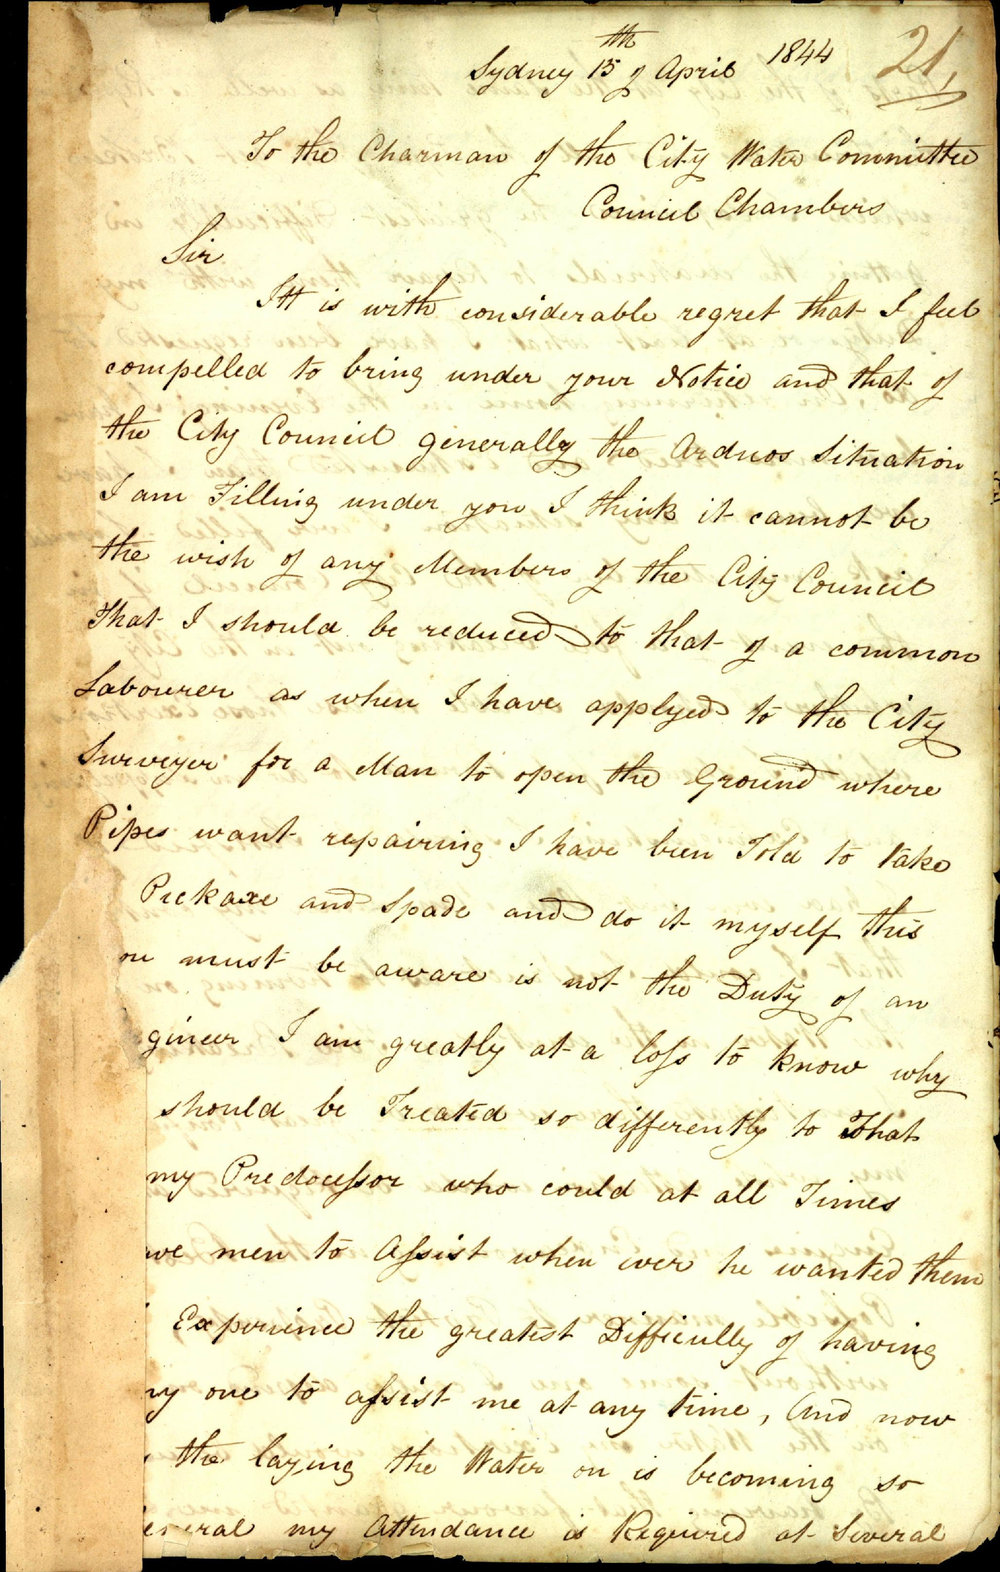 Sydney 15th of April 1844
21,
To the Charman of the City Water Committee
Council Chambers
Sir
Itt is with considerable regret that I feel
compelled to bring under your Notice and that of
the City Council generally the Arduos Situation
I am Filling under you I think it cannot be
the wish of any Members of the City Council
That I should be reduced to that of a common
Labourer as when I have applyed to the City
Surveyer for a Man to open the Ground where
Pipes want repairing I have been Told to take
Pickaxe and Spade and do it myself this
ou must be aware is not the Duty of an
gineer I am greatly at a loss to know why
should be Treated so differently to That
my Predocessor who could at all Times
ave men to Assist when ever he wanted them
Experience the greatest Difficully of having
ny one to assist me at any time, And now
the laying the Water on is becoming so
eneral my Attendance is Required at Several